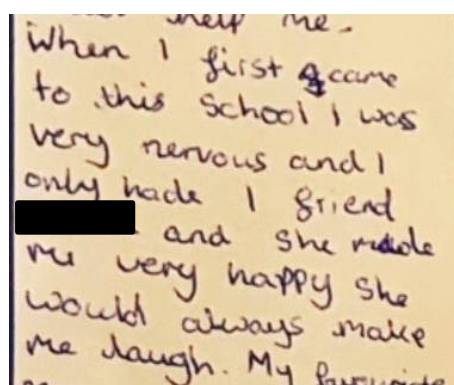 help me.
When I first came
to this school I was
very nervous and I
only hade 1 friend
and she made
me very happy she
would always make
me laugh. My favourite